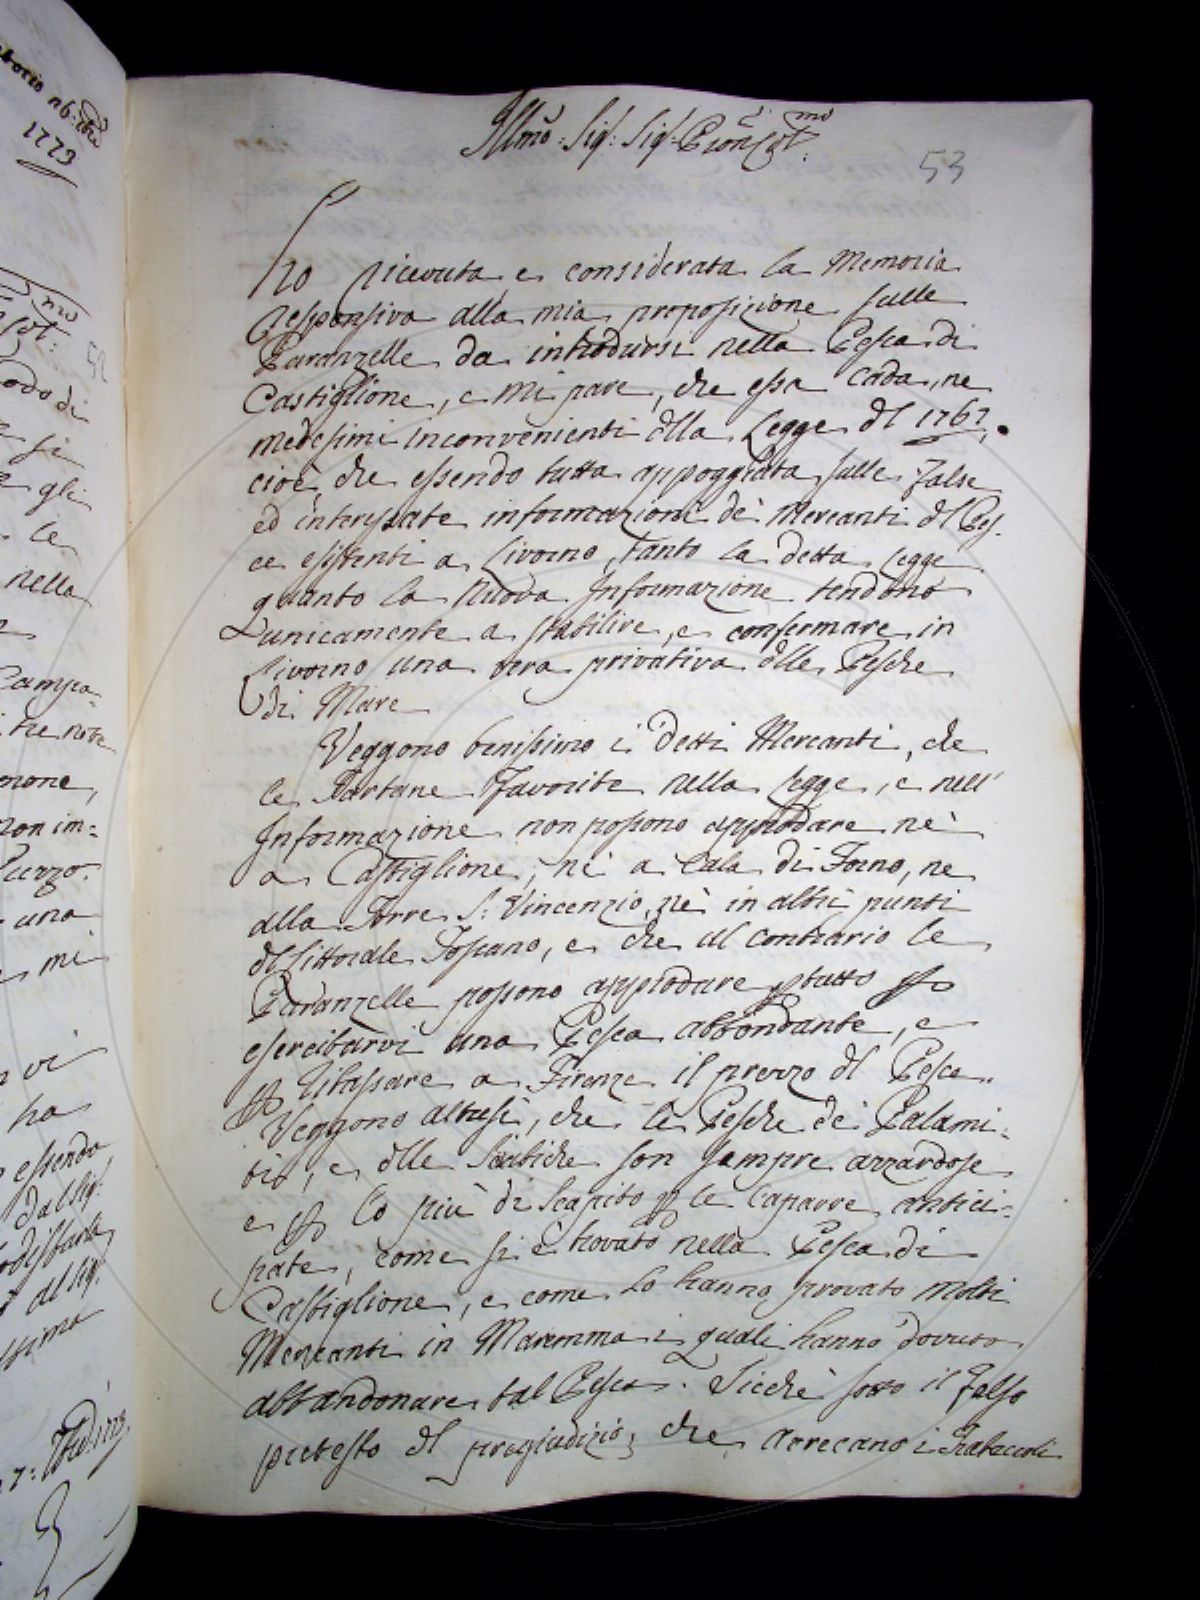 Illmo: Sig: Sig: Pron Col:mo
53
Ho ricevuta e considerata la Memoria
Responsiva alla mia proposizione sulle
Paranzelle da introdursi nella Pesca di
Castiglione, e mi pare, che essa cada ne
medesimi inconvenienti dlla Legge dl 1767,
cioè, che essendo tutta appoggiata sulle false
ed interessate informazioni de' Mercanti dl Pes-
ce esistenti a Livorno, tanto la detta Legge
quanto la nuova Informazione tendono
unicamente a stabilire, e confermare in
Livorno una vera privativa dlle Pesche
di Mare
Veggono benissimo i detti Mercanti, che
le Tartane favorite nella Legge, e nell'
Informazione non possono approdare nè
a Castiglione, nè a Cala di Forno, ne
alla Torre S: Vincenzio, nè in altri punti
dl littorale Toscano, e che al contrario le
Paranzelle possono approdare p tutto p
esercitarvi una Pesca abbondante, e
p ribassare a Firenze il prezzo dl Pesce.
Veggono altresì, che le Pesche dei Palami-
ti, e dlle Sciabiche son sempre azzardose
e p lo più di scapito p le caparre antici-
pate, come si è trovato nella Pesca di
Castiglione, e come lo hanno provato molti
Mercanti in Maremma i quali hanno dovuto
abbandonare tal Pesca. Sicchè sotto il falso
pretesto dl pregiudizio, che arrecano i Trabaccoli
1773
52
odo di
si
e gli
le
nella
Campa-
tre nove
mone,
non im-
una
e mi
vi
ha
essendo
dal Sig:
al Sig:
ssima